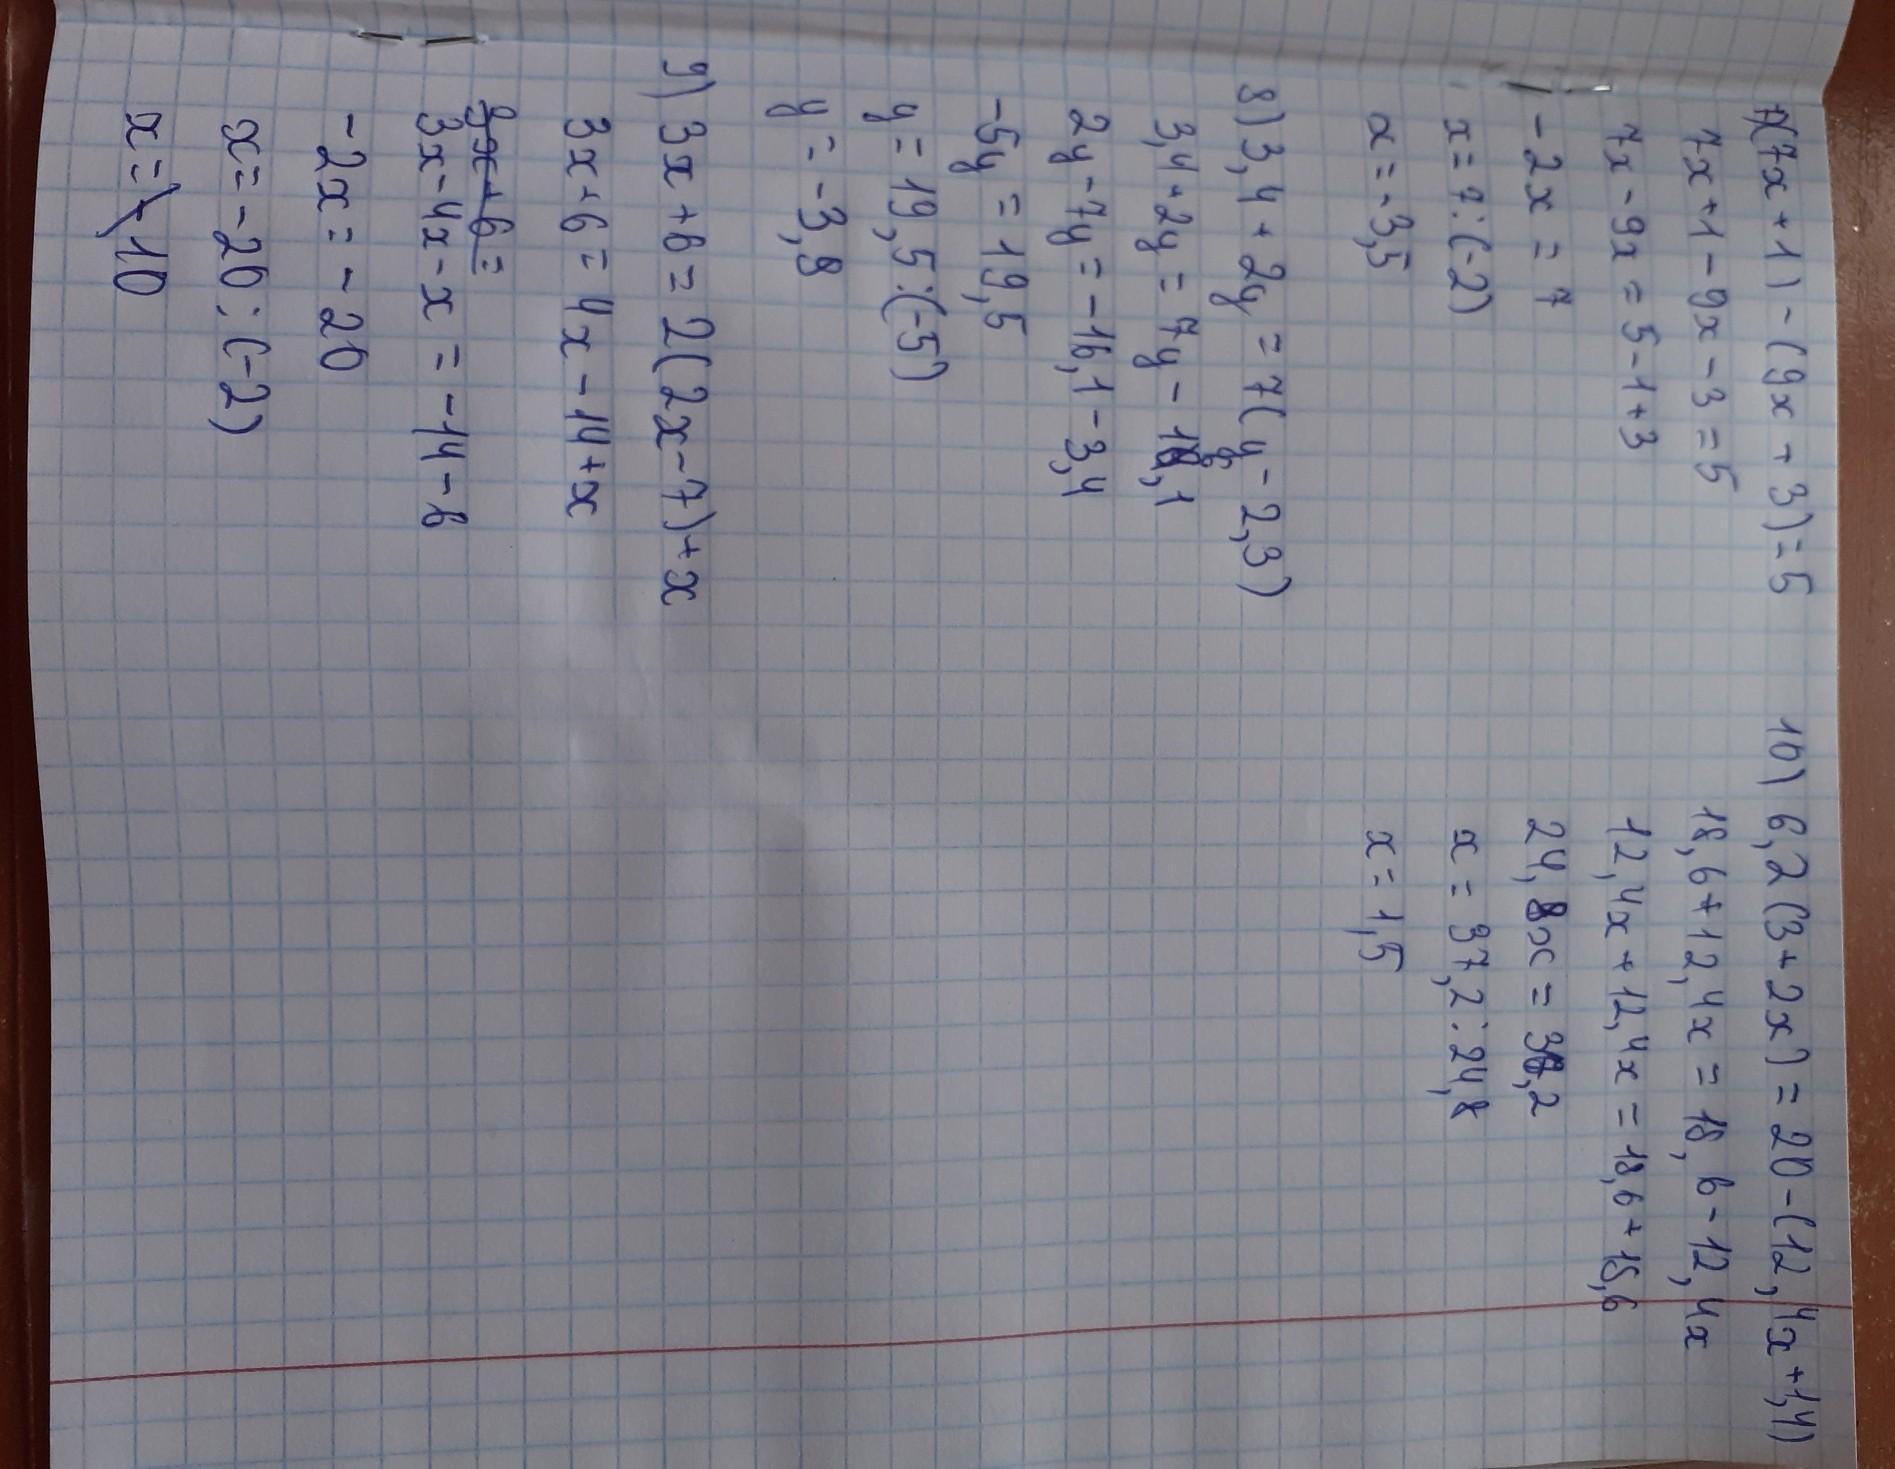 7) (7x + 1) - (9x + 3) = 5
7x + 1 - 9x - 3 = 5
7x - 9x = 5 - 1 + 3
-2x = 7
x = 7 : (-2)
x = -3,5
8) 3,4 + 2y = 7(y - 2,3)
3,4 + 2y = 7y - 16,1
2y - 7y = -16,1 - 3,4
-5y = 19,5
y = 19,5 : (-5)
y = -3,8
9) 3x + 6 = 2(2x - 7) + x
3x + 6 = 4x - 14 + x
3x + 6 =
3x - 4x - x = -14 - 6
-2x = -20
x = -20 : (-2)
x = 10
10) 6,2(3 + 2x) = 20 - (12,4x + 1,4)
18,6 + 12,4x = 18,6 - 12,4x
12,4x + 12,4x = 18,6 + 18,6
24,8x = 37,2
x = 37,2 : 24,8
x = 1,5